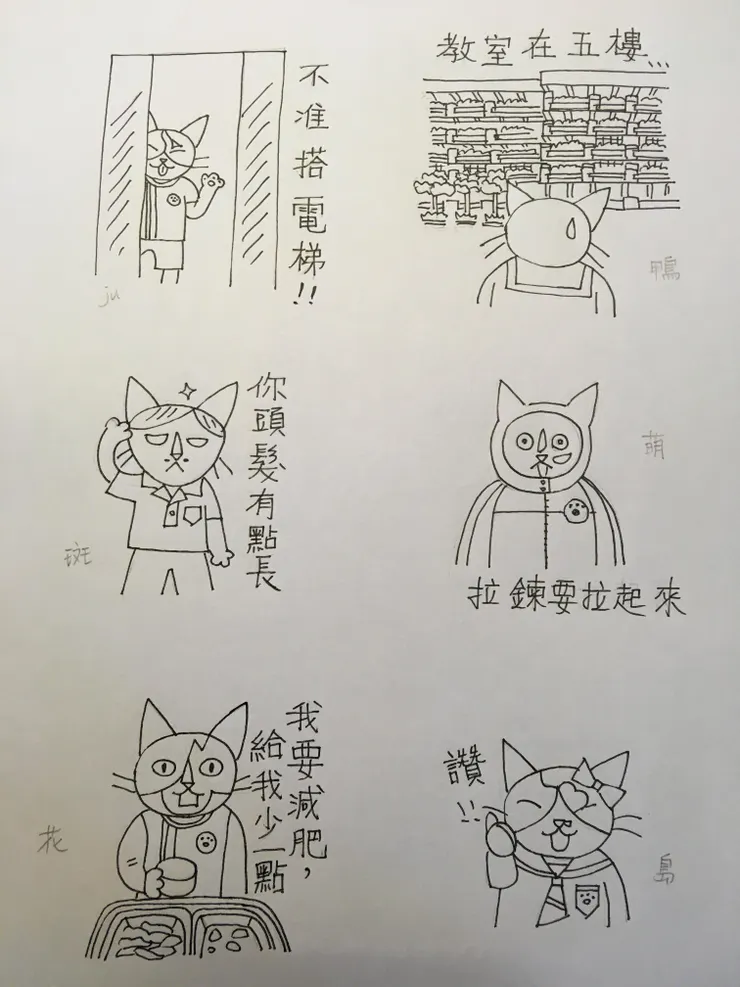 不准搭電梯!!
ju
教室在五樓...
鴨
你頭髮有點長
斑
萌
拉鍊要拉起來
我要減肥，
給我少一點
花
讚!!
島